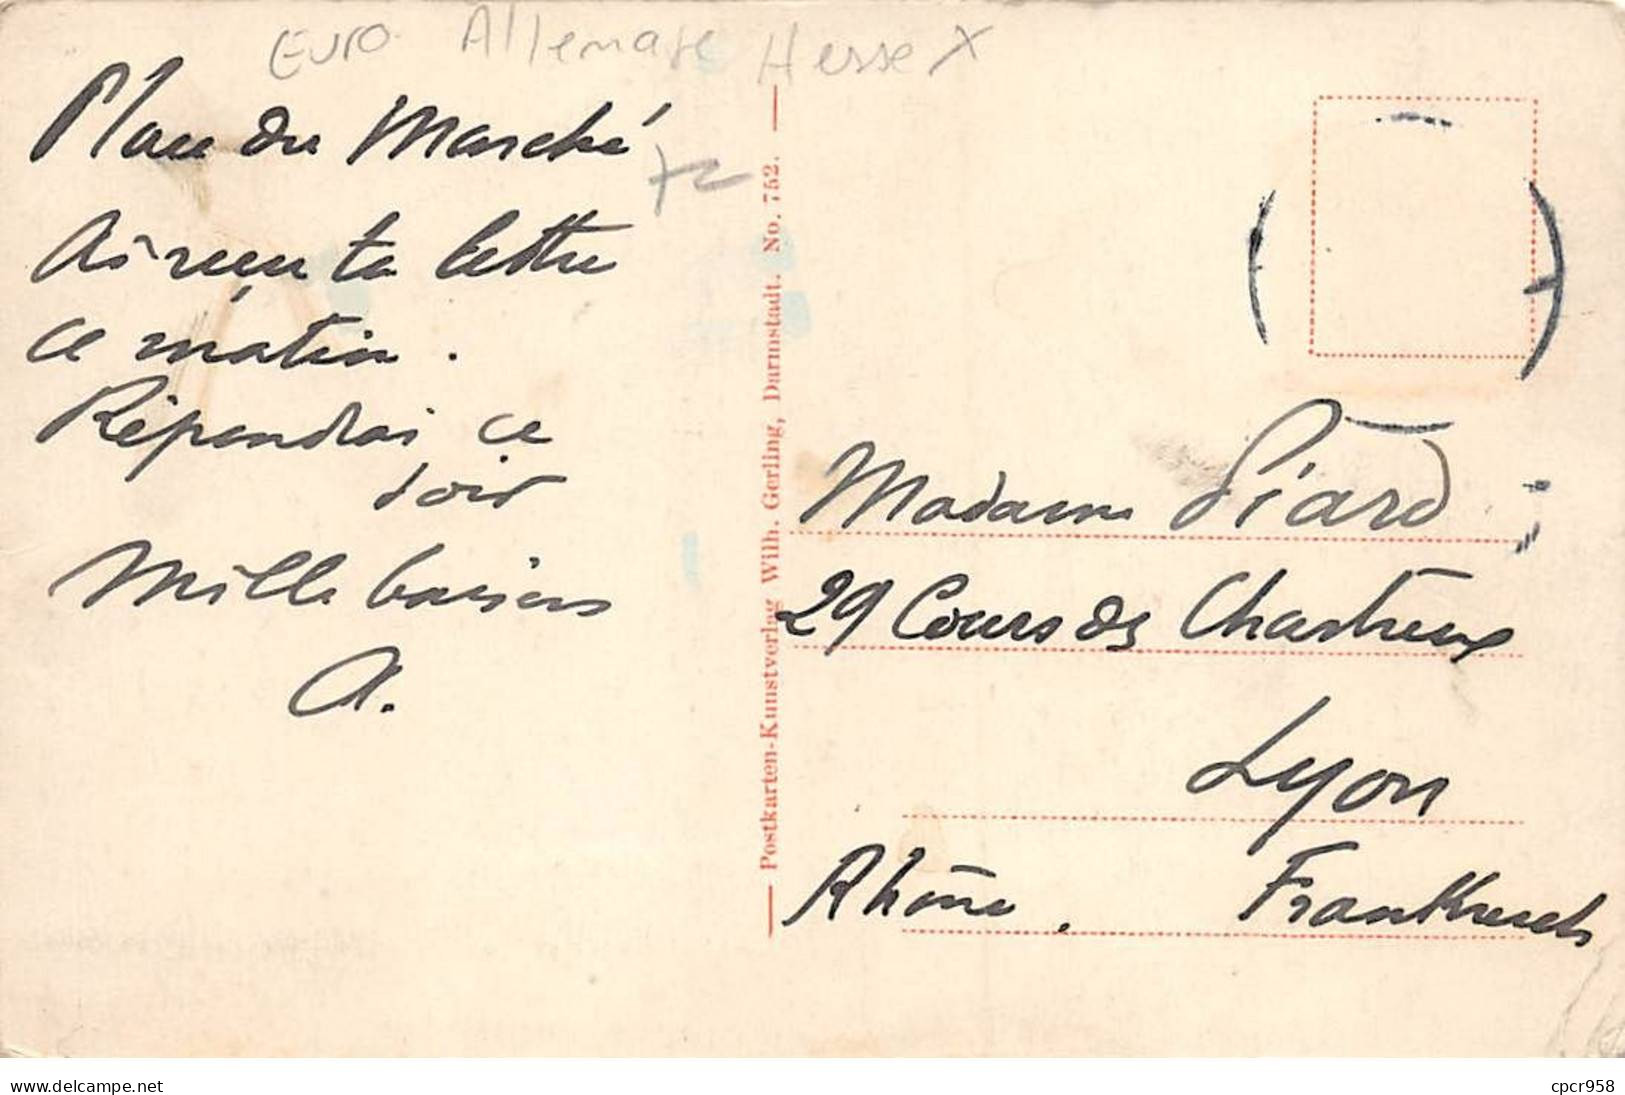 Euro Allemagne Hesse X
Place du Marché
Ai reçu ta lettre
ce matin.
Répondrai ce
soir
Mille baisers
A.
Postkarten-Kunstverlag Wilh. Gerling, Darmstadt. No. 752.
Madame Piard
29 Cours des Chartreux
Lyon
Rhône. Frankreich
www.delcampe.net
cpcr958